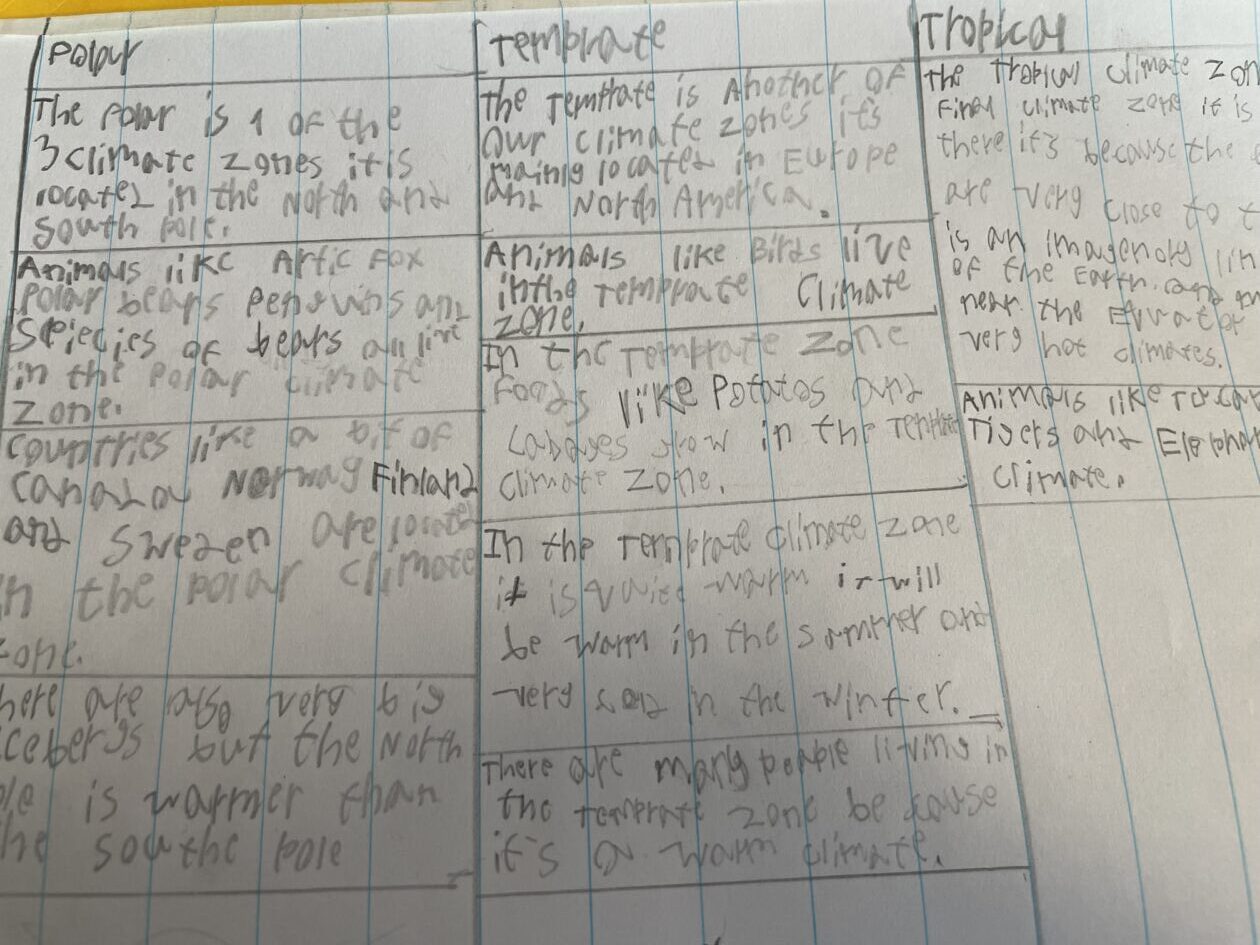 Polar
The Polar is 1 of the
3 climate zones it is
located in the North and
south pole.
Animals like Artic Fox
Polar bears Penguins and
Spiecies of bears all live
in the Polar climate
zone.
Countries like a bit of
Canada Norway Finland
and Sweden are located
in the polar climate
zone.
here are also very big
cebergs but the North
ole is warmer than
he southe pole
Temprate
The Temprate is Another of
our climate zones it's
mainly located in Europe
and North America.
Animals like Birds live
in the Temprate Climate
zone.
In the Temprate zone
foods like Potatos and
cabages grow in the
climate zone.
In the Temprate climate zone
it is quite warm it will
be warm in the summer and
very in the winter.
There are many people living in
the temprate zone be cause
it's a warm climate.
Tropical
The Tropical climate zon
Final climate zone it is
there it's because the
are very close to t
is an imagenory lin
of the Earth. and
near the Equator
very hot climates.
Animals like
Tigers and
climate.